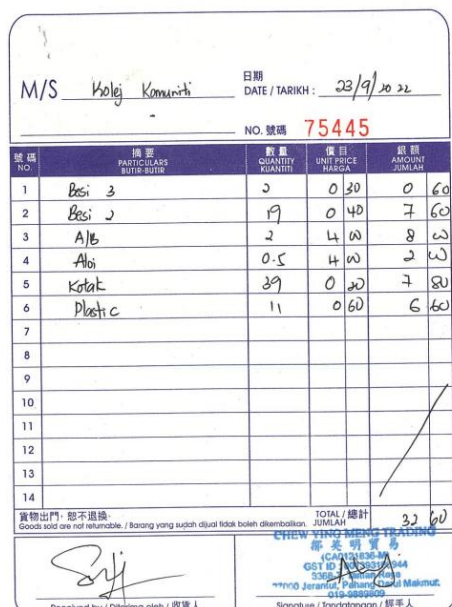 M/S Kolej Komuniti
日期
DATE / TARIKH : 23/9/2022
NO. 號碼 75445
號碼 NO. 摘要 PARTICULARS BUTIR-BUTIR 數量 QUANTITY KUANTITI 價目 UNIT PRICE HARGA 銀額 AMOUNT JUMLAH
1 Besi 3 2 0 30 0 60
2 Besi 2 19 0 40 7 60
3 A/B 2 4 00 8 00
4 Aloi 0.5 4 00 2 00
5 Kotak 39 0 20 7 80
6 Plastic 11 0 60 6 60
7
8
9
10
11
12
13
14
貨物出門，恕不退換。
Goods sold are not returnable. / Barang yang sudah dijual tidak boleh dikembalikan. TOTAL / 總計 JUMLAH 32 60
CHEW YING MENG TRADING
英明貿易
GST ID
27000 Jerantut, Pahang Darul Makmur.
019-9889809
Received by / Diterima oleh / 收貨人 Signature / Tandatangan / 經手人